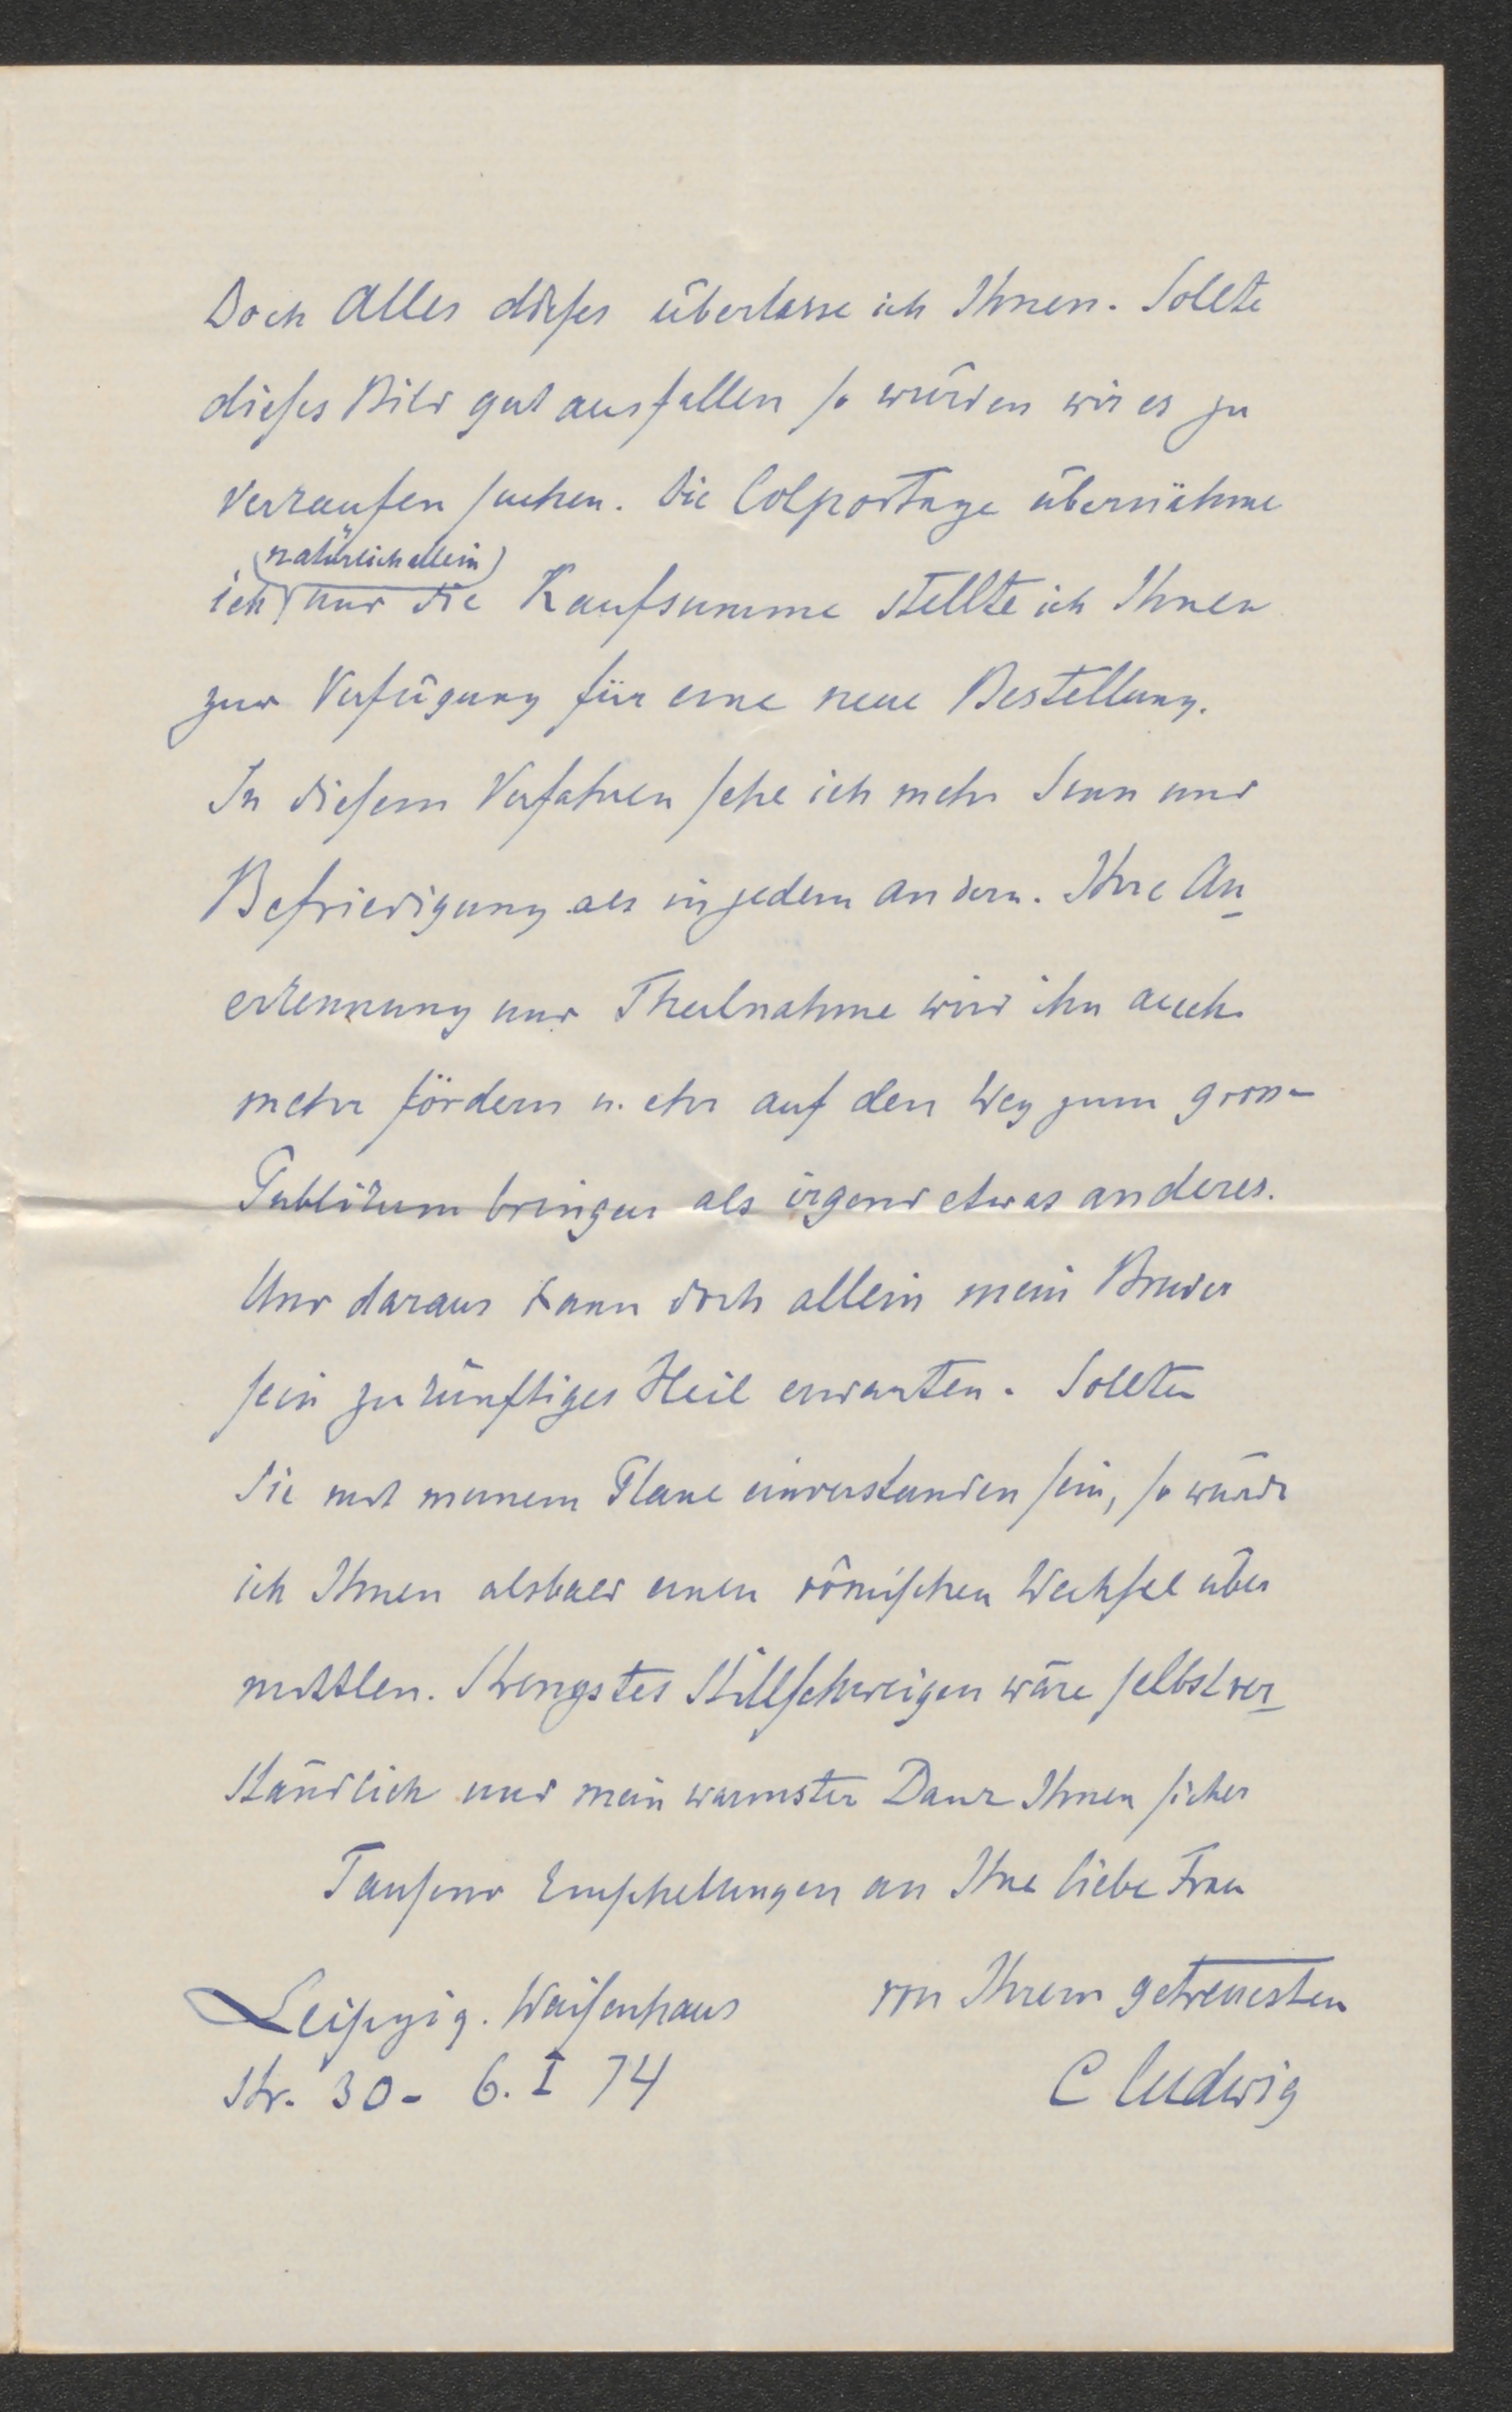 Doch Alles dieses überlasse ich Ihnen. Sollte
dieses Bild gut ausfallen so würden wir es zu
verkaufen suchen. Die Colportage übernähme
(natürlich allein)
ich und die Kaufsumme stellte ich Ihnen
zur Verfügung für eine neue Bestellung.
In diesem Verfahren sehe ich mehr Sinn und
Befriedigung als in jedem andern. Ihre An-
erkennung und Theilnahme wird ihn auch
mehr fördern u. eher auf den Weg zum gross-
Publikum bringen als irgend etwas anderes.
Und daraus kann doch allein mein Bruder
sein zukünftiges Heil erwarten. Sollten
Sie mit meinem Plane einverstanden sein, so würde
ich Ihnen alsbald einen römischen Wechsel über
mitteln. Strengstes Stillschweigen wäre selbstver-
ständlich und mein warmster Dank Ihnen sicher
Tausend Empfehlungen an Ihre liebe Frau
von Ihrem getreuesten
C Ludwig
Leipzig. Waisenhaus
Str. 30- 6. I 74